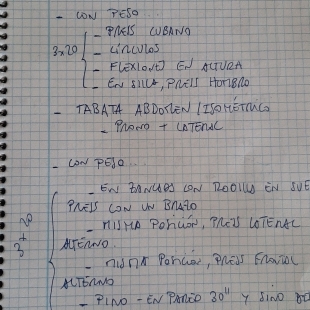 - CON PESO...
3x20
- PRESS CUBANO
- CÍRCULOS
- FLEXIONES EN ALTURA
- EN SILLA, PRESS HOMBRO
- TABATA ABDOMEN/ISOMÉTRICO
- PRONO + LATERAL
- CON PESO...
3+20
- EN ZANCADAS CON RODILLA EN SUE
PRESS CON UN BRAZO
- MISMA POSICIÓN, PRESS LATERAL
ALTERNO.
- MISMA POSICIÓN, PRESS FRONTAL
ALTERNO
- PINO - EN PARED 30" Y SINO